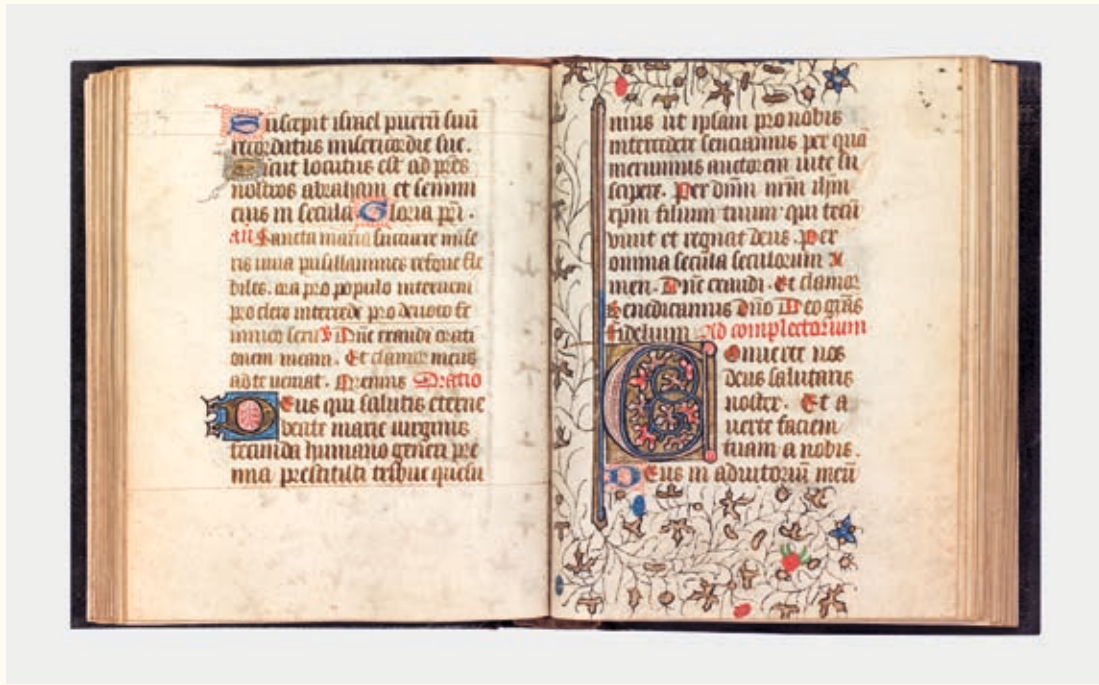 Suscepit israel puerū suū
recordatus misericordie sue.
Sicut locutus est ad p̄res
nostros abraham et semini
eius in secula Gloria pr̄i.
añ Sancta maria succurre mise
ris iuua pusillanimes refoue fle
biles. ora pro populo interueni
pro clero intercede pro deuoto fe
mineo sexu Dñe exaudi orati
onem meam. Et clamor meus
ad te ueniat. Oremus Oratio
Deus qui salutis eterne
beate marie uirginis
fecunda humano generi pre
mia prestitisti tribue quesu
mus ut ipsam pro nobis
intercedere senciamus per quā
meruimus auctorem uite su
scipere. Per dñm nr̄m ih̄m
xp̄m filium tuum qui tecū
viuit et regnat deus. Per
omnia secula seculorum A
men. Dñe exaudi. Et clamor
Benedicamus dño Deo gr̄as
fidelium Ad completorium
Conuerte nos
deus salutaris
noster. Et a
uerte faciem
tuam a nobis.
Deus in adiutoriū meū